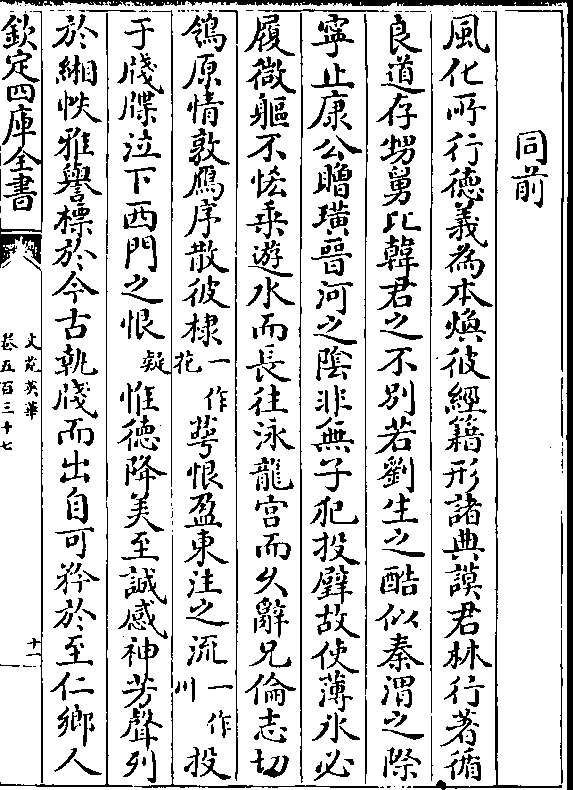 同前
風化所行德義為本煥彼經籍形諸典謨君林行著循
良道存甥舅比韓君之不別若劉生之酷似秦渭之際
寧止康公贈璜晉河之陰非無子犯投璧故使薄氷必
履微軀不恡乗遊水而長往泳龍宫而乆辭兄倫志切
鴒原情敦鴈序散彼棣一作花萼恨盈東注之流一作川投
于牋牒泣下西門之恨疑惟德降美至誠感神芳聲列
於緗帙雅譽標於今古執牋而出自可矜於至仁鄉人
欽定四庫全書
文苑英華
卷五百三十七
十一